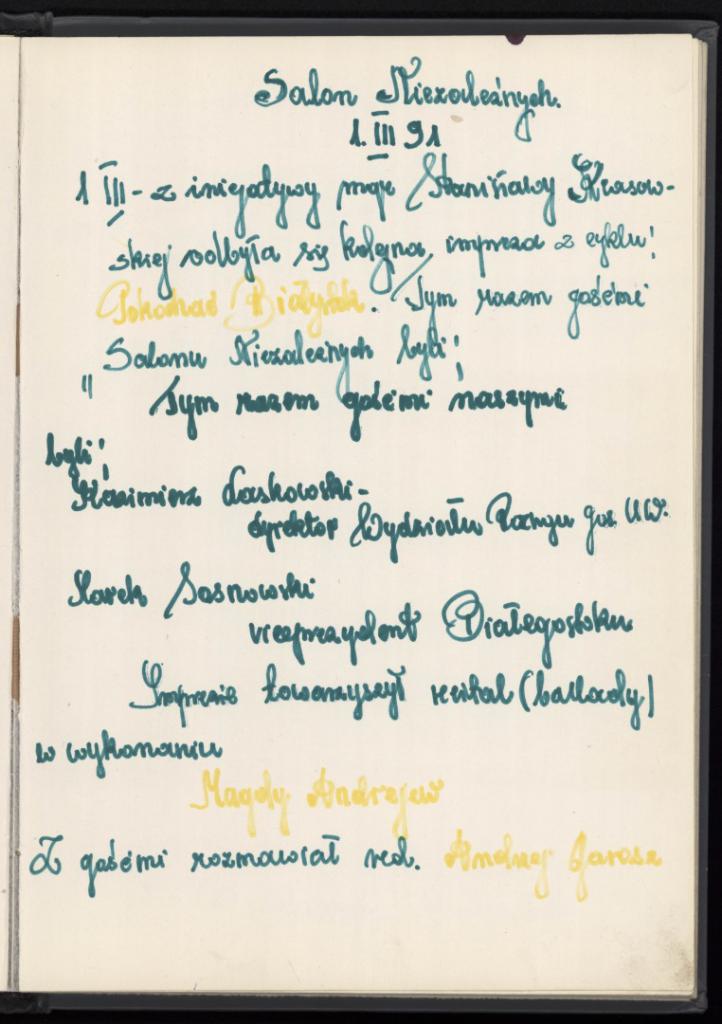 Salon Niezależnych.
1. III 91
1 III - z inicjatywy mgr Stanisławy Krasow-
skiej odbyła się kolejna impreza z cyklu:
Pokochać Białystok. Tym razem gośćmi
Salonu Niezależnych byli:
" Tym razem gośćmi naszymi
byli:
Kazimierz Laskowski -
dyrektor Wydziału gos. U.W.
Marek Sosnowski
viceprezydent Białegostoku
Imprezie towarzyszył recital (ballady)
w wykonaniu
Magdy Andrzejew
Z gośćmi rozmawiał red. Andrzej Jarosz